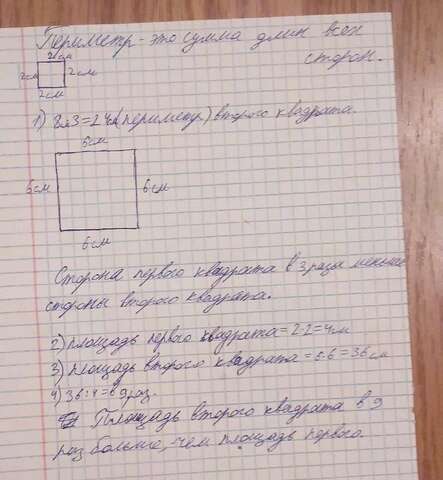 Периметр - это сумма длин всех
сторон.
2см
2см 2см
2см
1) 8·3=24см(периметр) второго квадрата.
6см
6см 6см
6см
Сторона первого квадрата в 3 раза меньше
стороны второго квадрата.
2) площадь первого квадрата=2·2=4см
3) площадь второго квадрата=6·6=36см
4) 36:4=в 9 раз.
Площадь второго квадрата в 9
раз больше, чем площадь первого.